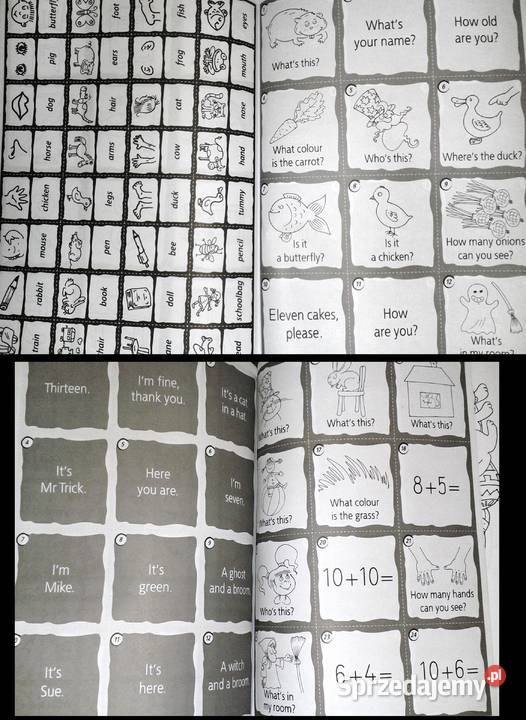 butterf foot fish eyes
pig ears frog mouth
dog hair cat nose
horse arms cow hand
chicken legs duck tummy
mouse pen bee pencil
rabbit book doll schoolbag
train hair ane ead
What's this?
What's
your name?
How old
are you?
4
What colour
is the carrot?
5
Who's this?
6
Where's the duck?
7
Is it
a butterfly?
8
Is it
a chicken?
9
How many onions
can you see?
10
Eleven cakes,
please.
11
How
are you?
12
What's
in my room?
Thirteen.
I'm fine,
thank you.
It's a cat
in a hat.
4
It's
Mr Trick.
5
Here
you are.
6
I'm
seven.
7
I'm
Mike.
8
It's
green.
9
A ghost
and a broom.
It's
Sue.
11
It's
here.
12
A witch
and a broom.
What's this?
What's this?
What's this?
What's this?
17
What colour
is the grass?
18
8+5=
Who's this?
20
10+10=
21
How many hands
can you see?
What's in
my room?
23
6+4=
24
10+6=
Sprzedajemy.pl